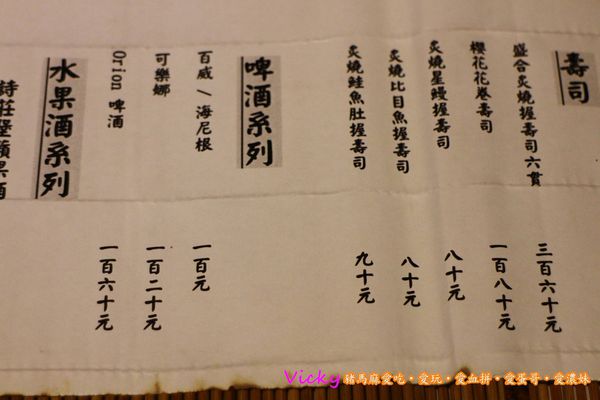 壽司
盛合炙燒握壽司六貫 三百六十元
櫻花花卷壽司 一百八十元
炙燒星鰻握壽司 八十元
炙燒比目魚握壽司 八十元
炙燒鮭魚肚握壽司 九十元
啤酒系列
百威/海尼根 一百元
可樂娜 一百二十元
Orion 啤酒 一百六十元
水果酒系列
詩莊堡蘋果酒
Vicky豬馬麻愛吃•愛玩•愛血拼•愛蛋哥•愛濃妹